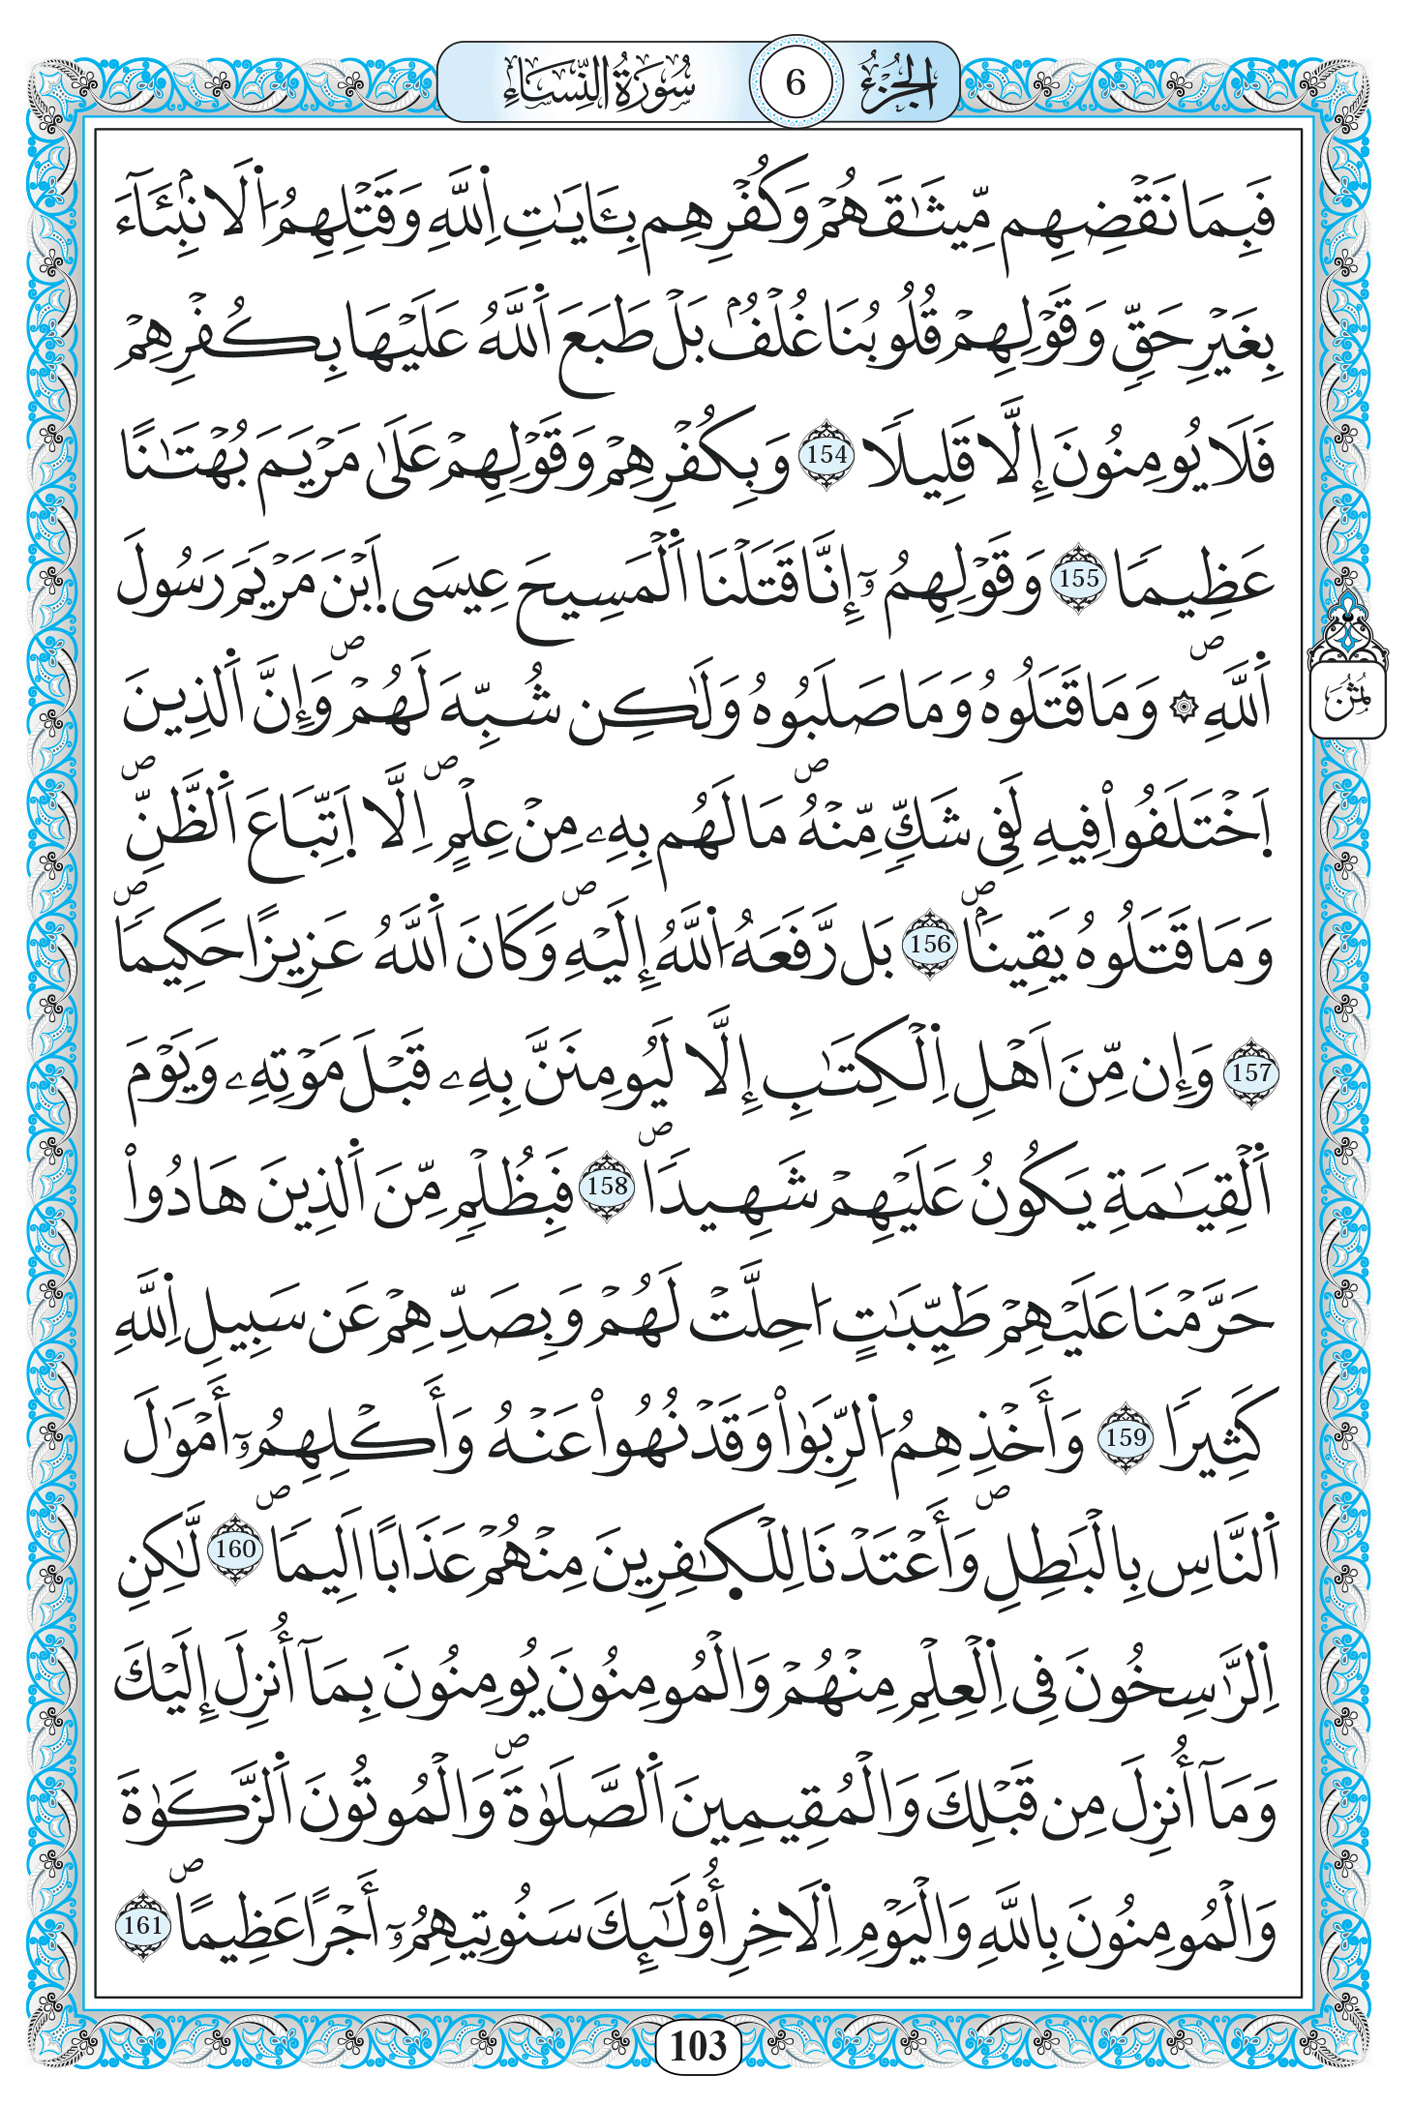 سُورَةُ النِّسَاءِ 6 الجُزْءُ
فَبِمَا نَقْضِهِم مِّيثَٰقَهُمْ وَكُفْرِهِم بِـَٔايَٰتِ اِ۬للَّهِ وَقَتْلِهِمُ اُ۬لَانۢبِئَآءَ
بِغَيْرِ حَقّٖ وَقَوْلِهِمْ قُلُوبُنَا غُلْفُۢ بَلْ طَبَعَ اَ۬للَّهُ عَلَيْهَا بِكُفْرِهِمْ
فَلَا يُومِنُونَ إِلَّا قَلِيلاً 154 وَبِكُفْرِهِمْ وَقَوْلِهِمْ عَلَىٰ مَرْيَمَ بُهْتَٰناً
عَظِيماً 155 وَقَوْلِهِمُۥٓ إِنَّا قَتَلْنَا اَ۬لْمَسِيحَ عِيسَى اَ۪بْنَ مَرْيَمَ رَسُولَ
اَ۬للَّهِۖ ۞ وَمَا قَتَلُوهُ وَمَا صَلَبُوهُ وَلَٰكِن شُبِّهَ لَهُمْۖ وَإِنَّ اَ۬لذِينَ
اَ۪خْتَلَفُواْ فِيهِ لَفِى شَكّٖ مِّنْهُۖ مَا لَهُم بِهِۦ مِنْ عِلْمٍۖ اِلَّا اَ۪تِّبَاعَ اَ۬لظَّنِّۖ
وَمَا قَتَلُوهُ يَقِيناَۢۖ 156 بَل رَّفَعَهُ اُ۬للَّهُ إِلَيْهِۖ وَكَانَ اَ۬للَّهُ عَزِيزاً حَكِيماٗۖ
157 وَإِن مِّنَ اَهْلِ اِ۬لْكِتَٰبِ إِلَّا لَيُومِنَنَّ بِهِۦ قَبْلَ مَوْتِهِۦ وَيَوْمَ
اَ۬لْقِيَٰمَةِ يَكُونُ عَلَيْهِمْ شَهِيداٗۖ 158 فَبِظُلْمٖ مِّنَ اَ۬لذِينَ هَادُواْ
حَرَّمْنَا عَلَيْهِمْ طَيِّبَٰتٍ ا۟حِلَّتْ لَهُمْ وَبِصَدِّهِمْ عَن سَبِيلِ اِ۬للَّهِ
كَثِيراٗ 159 وَأَخْذِهِمُ اُ۬لرِّبَوٰاْ وَقَدْ نُهُواْ عَنْهُ وَأَكْلِهِمُۥٓ أَمْوَٰلَ
اَ۬لنَّاسِ بِالْبَٰطِلِۖ وَأَعْتَدْنَا لِلْكٰ۪فِرِينَ مِنْهُمْ عَذَاباً اَلِيماٗۖ 160 لَّٰكِنِ
اِ۬لرَّٰسِخُونَ فِى اِ۬لْعِلْمِ مِنْهُمْ وَالْمُومِنُونَ يُومِنُونَ بِمَآ أُنزِلَ إِلَيْكَ
وَمَآ أُنزِلَ مِن قَبْلِكَ وَالْمُقِيمِينَ اَ۬لصَّلَوٰةَۖ وَالْمُوتُونَ اَ۬لزَّكَوٰةَ
وَالْمُومِنُونَ بِاللَّهِ وَالْيَوْمِ اِ۬لَاخِرِ أُوْلَٰٓئِكَ سَنُوتِيهِمُۥٓ أَجْراً عَظِيماًۖ 161
ثُمُن
103